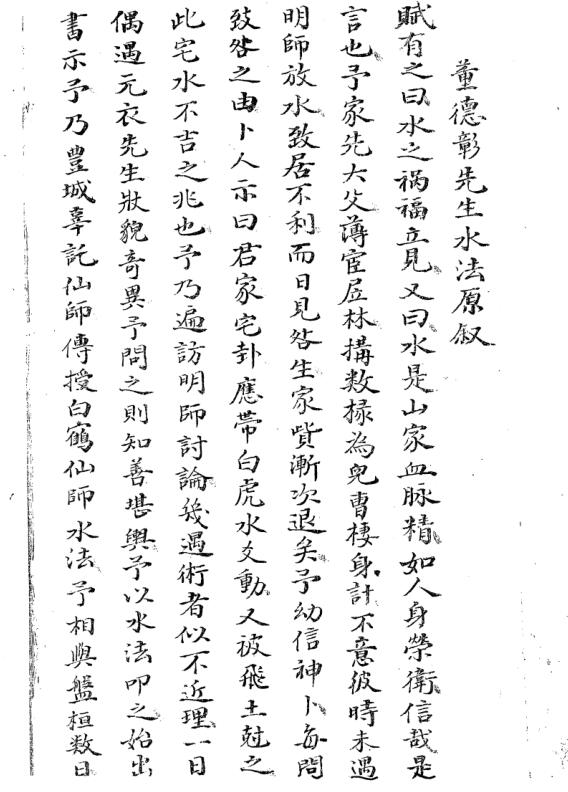 董德彰先生水法原叙
賦有之曰水之祸福立見又曰水是山家血脉精如人身榮衛信哉是
言也予家先大父薄宦居林搆数椽為兒曹棲身計不意彼時未遇
明師放水致居不利而日見咎生家貲漸次退矣予幼信神卜每問
致咎之由卜人示曰君家宅卦應帶白虎水爻動又被飛土尅之
此宅水不吉之兆也予乃遍訪明師討論幾遇術者似不近理一日
偶遇元衣先生狀貌奇異予問之則知善堪輿予以水法叩之始出
書示予乃豊城辜託仙師傳授白鶴仙師水法予相與盤桓数日